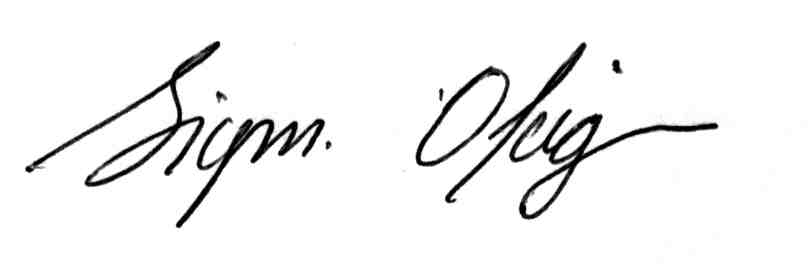 Sigm. Ófeig